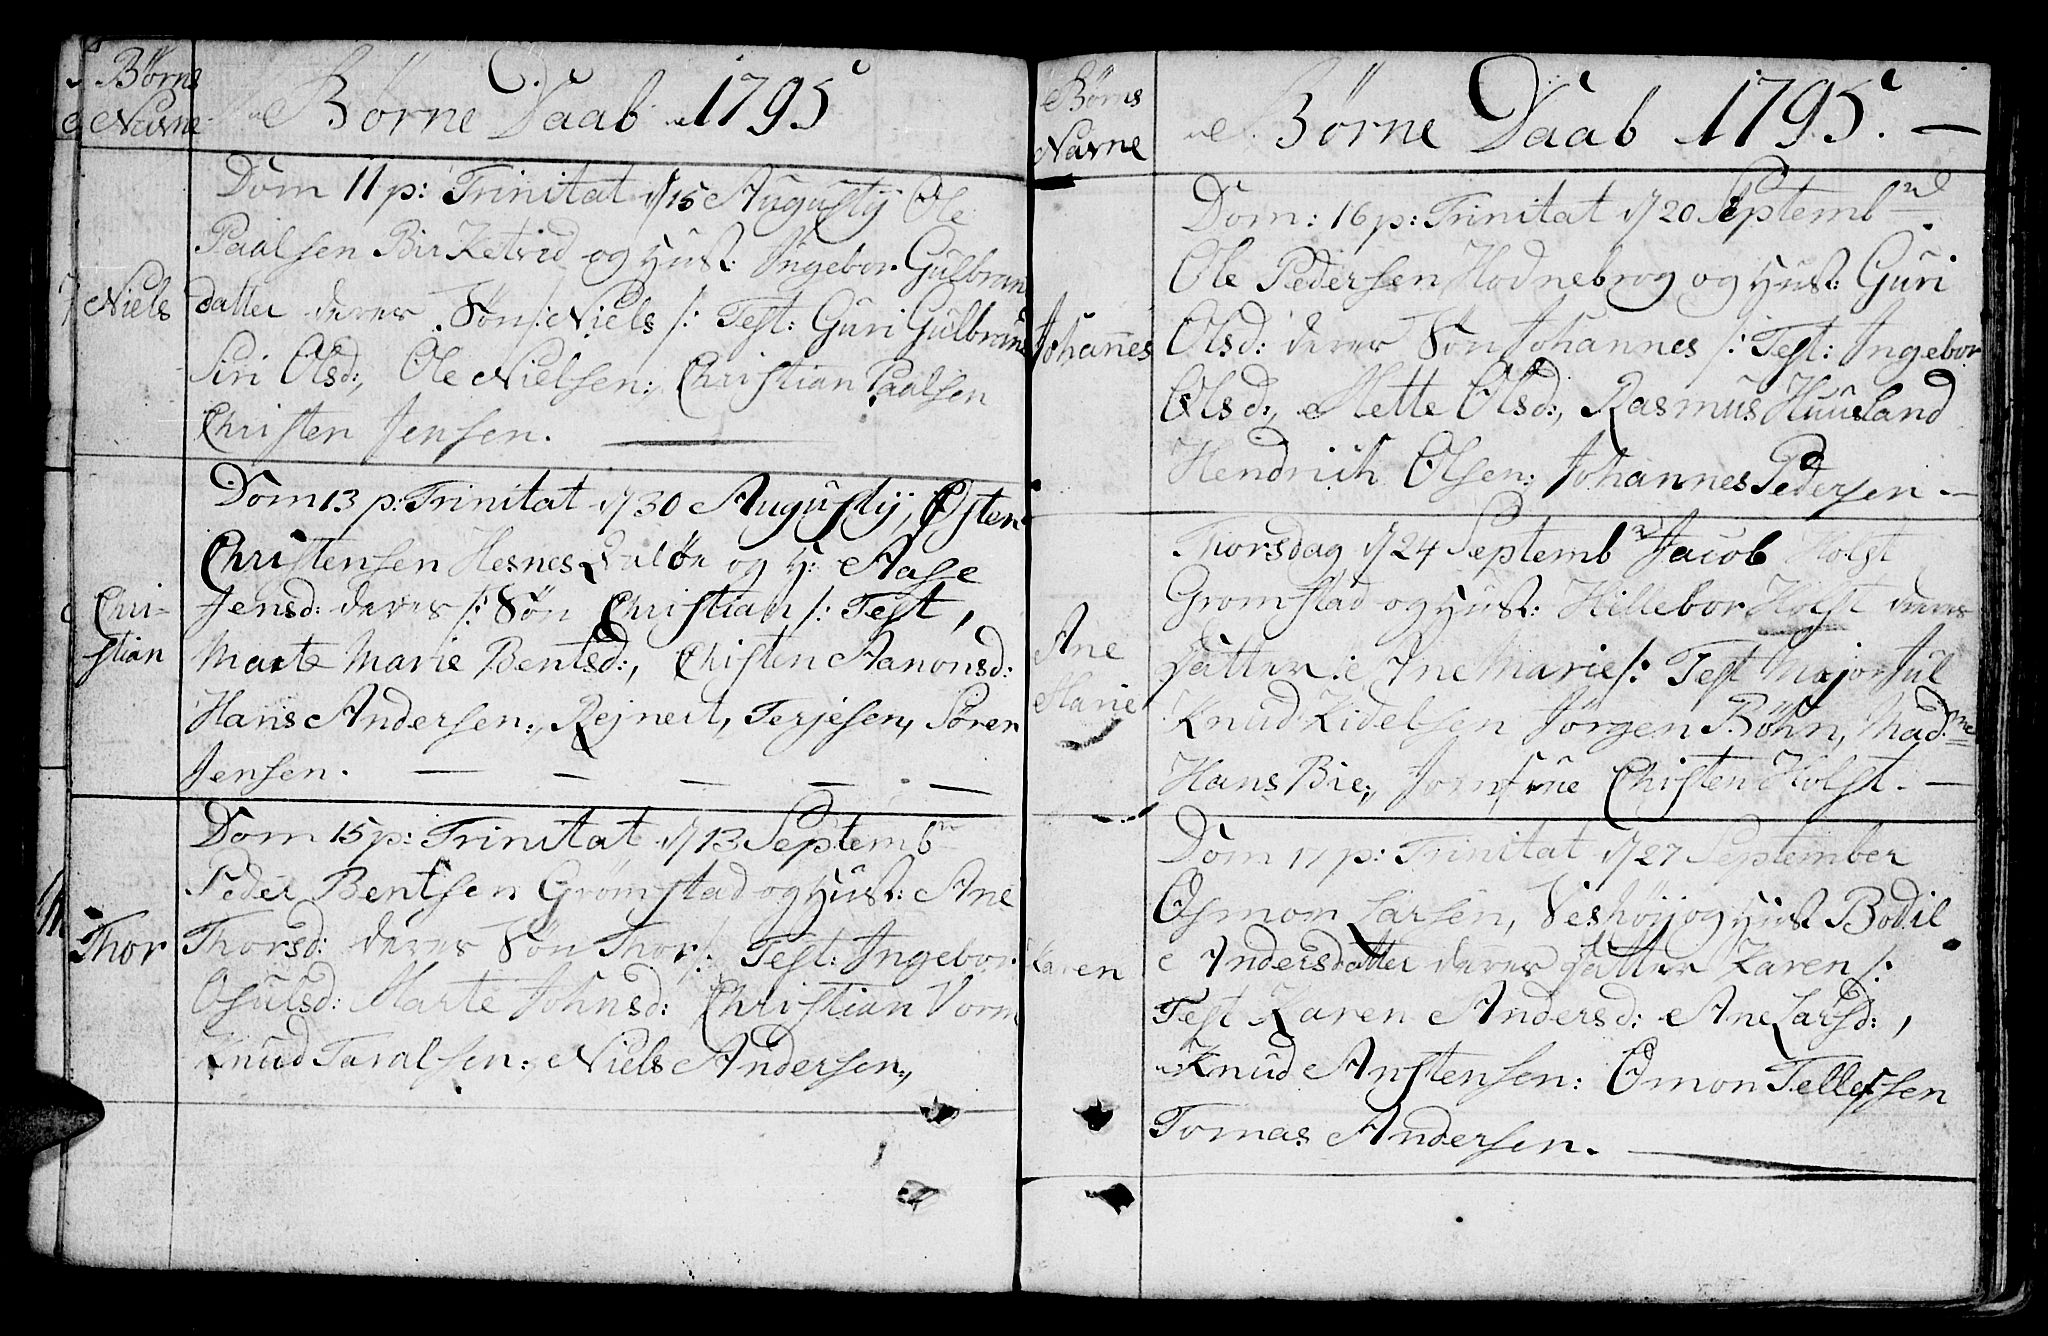 Børns
Navne
Børne Daab 1795
Dom 11 p: Trinitat d 15 Augustij Ole
Paalsen Birketvid og Hust: Ingebor Gulbrans
Niels
datter deres Søn /: Niels /: Test: Guri Gulbrans
Siri Olsd:, Ole Nielsen:, Christian Paalsen
Christen Jensen.
Dom 13 p: Trinitat d 30 Augustij, Østen
Christensen Hesnes og H: Aase
Chri-
stian
Jensd: deres /: Søn Christian /: Test,
Marte Marie Bentsd:, Chisten Aanonsd:
Hans Andersen:, Rejnert, Terjesen, Sören
Jensen.
Dom 15 p: Trinitat d 13 Septembr
Peder Bentsen Grømstad og Hust: Ane
Thor
Thorsd: deres Søn Thor /: Test: Ingebor
Osulsd: Marte Johnsd: Christian Vorm
Knud Taralsen: Niels Andersen,
Børns
Navne
Børne Daab 1795. —
Dom: 16 p: Trinitat d 20 Septembr
Ole Pedersen Hodnebrog og Hust: Guri
Johannes
Olsd: deres Søn Johannes /: Test: Ingebor
Olsd:, Mette Olsd:, Rasmus Huusland
Hendrich Olsen: Johannes Pedersen —
Torsdag d 24 Septembr Jacob Holst
Gromstad og Hust: Hillebor Holst deres
Ane
Marie
datter Ane Marie /: Test Major Jul
Knud Kidelsen Jörgen Böhn, Madme
Hans Bie, Jomfrue Chisten Holst. —
Dom 17 p: Trinitat d 27 September
Osmon Larsen, Veshöij og Hust Bodil
Karen
Andersdatter deres datter Karen /:
Test Karen Andersd: Ane Larsd:,
Knud Anstensen: Omon Tellefsen
Tomas Andersen.